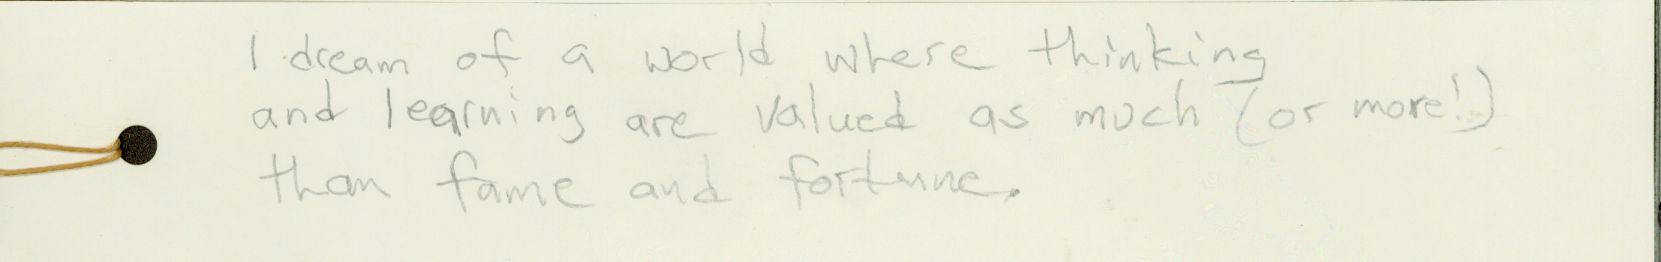 I dream of a world where thinking
and learning are valued as much (or more!)
than fame and fortune.